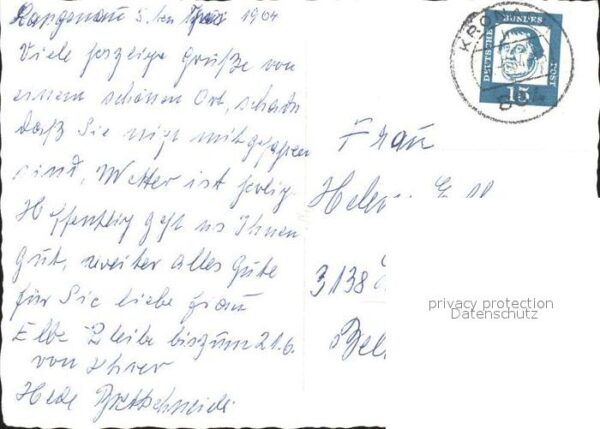 Langenau 5. ten 1964
Viele herzliche Grüße von
einem schönen Ort, schade
daß Sie nicht mitgefahren
sind, Wetter ist herlig.
Hoffentlig geht es Ihnen
gut, weiter alles Gute
für Sie liebe Frau
Elbe bis zum 21.6.
von Ihrer
Hede Brettschneide
KRONA
DEUTSCHE BUNDESPOST
15
Frau
Helen
3138
privacy protection
Datenschutz